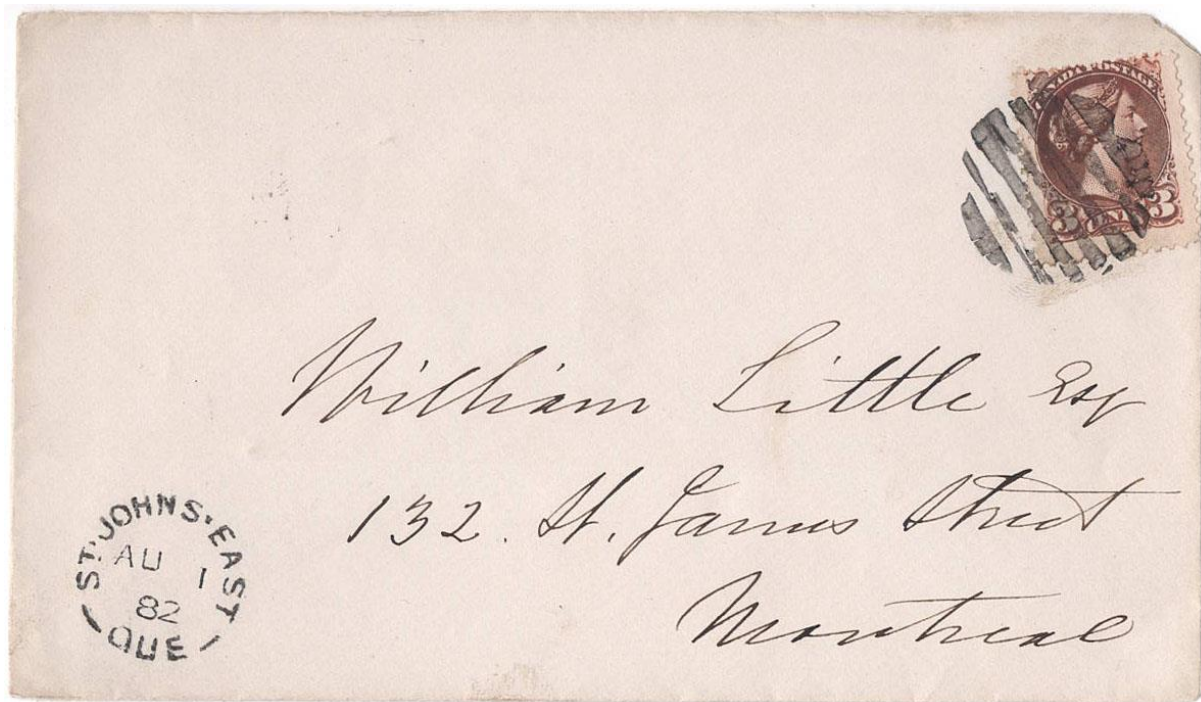 CANADA POSTAGE
3 CENTS 3
William Little Esq
132. St. James Street
Montreal
ST. JOHNS. EAST
AU 1
82
QUE